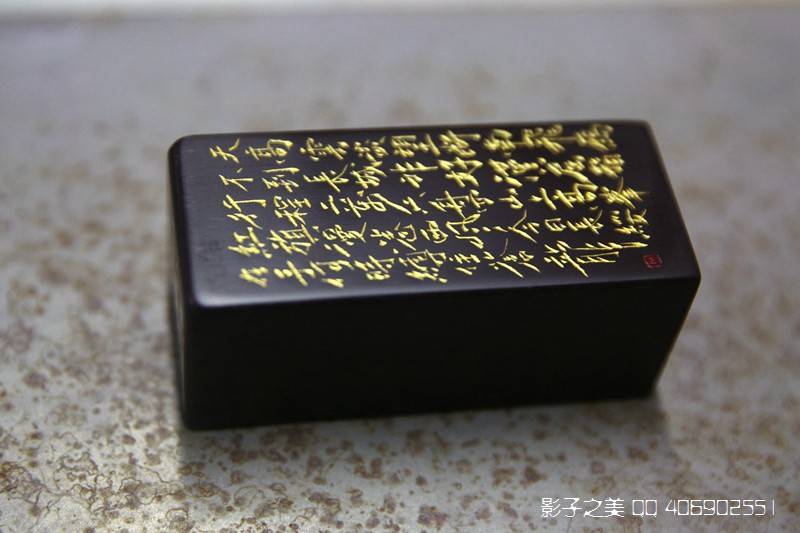 天高雲淡望断南飛雁
不到长城非好漢屈指
行程二萬六盤山上高峯
红旗漫卷西风今日长缨
在手何时縛住苍龍
影子之美 QQ 406902551